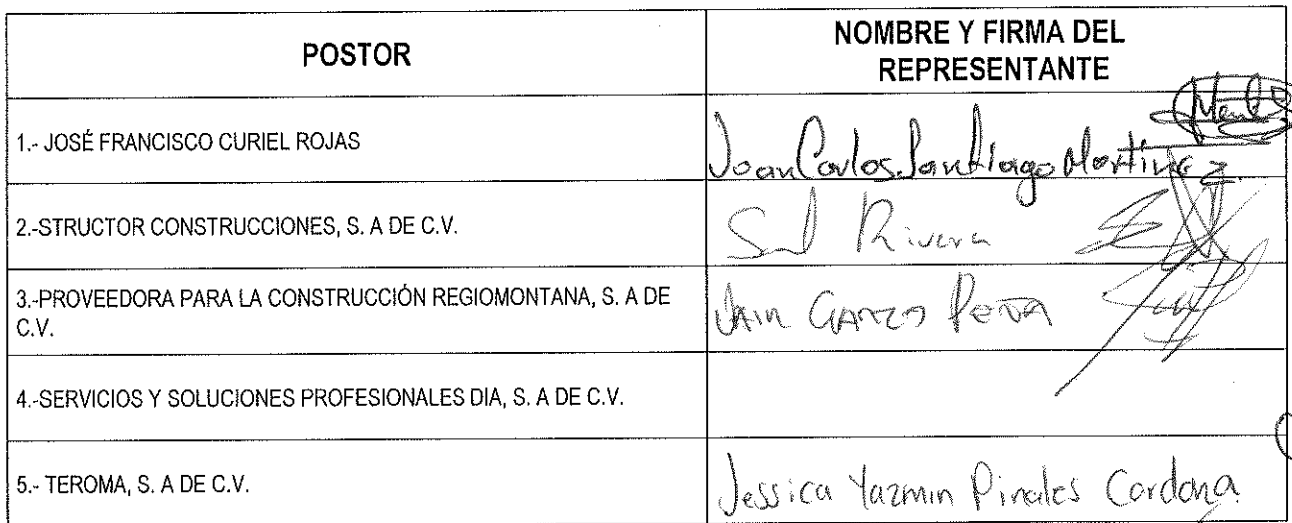 POSTOR
NOMBRE Y FIRMA DEL
REPRESENTANTE
1.- JOSÉ FRANCISCO CURIEL ROJAS
Joan Carlos Santiago Martinez
2.-STRUCTOR CONSTRUCCIONES, S. A DE C.V.
Rivera
3.-PROVEEDORA PARA LA CONSTRUCCIÓN REGIOMONTANA, S. A DE
C.V.
GARZA PEÑA
4.-SERVICIOS Y SOLUCIONES PROFESIONALES DIA, S. A DE C.V.
5.- TEROMA, S. A DE C.V.
Jessica Yazmin Pinales Cardona